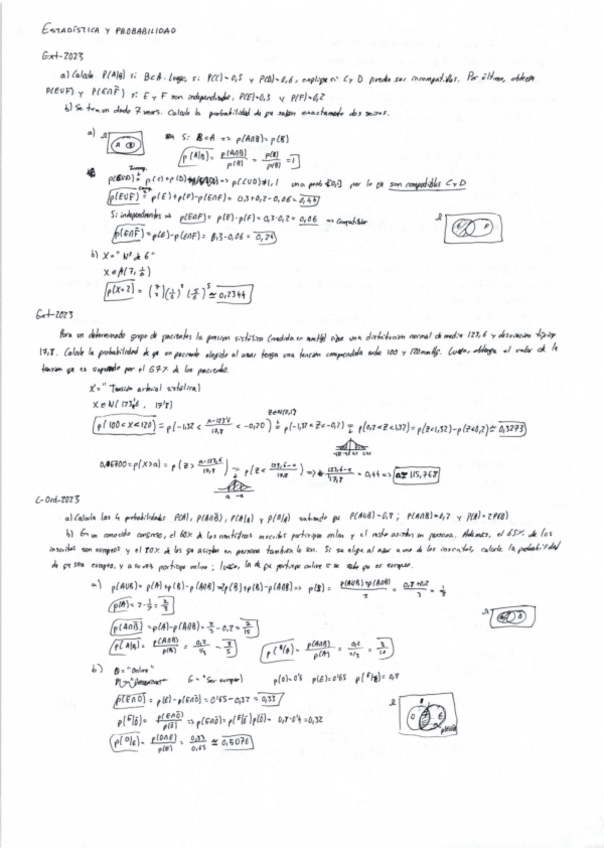 ESTADÍSTICA Y PROBABILIDAD
Ext-2023
a) Calcula P(A|B) si B⊂A. Luego, si P(C)=0,5 y P(D)=0,6, explique si C y D pueden ser incompatibles. Por último, obtenga
P(E∪F) y P(E∩F̄) si E y F son independientes, P(E)=0,3 y P(F)=0,2
b) Se tira un dado 7 veces. Calcule la probabilidad de que salgan exactamente dos seises.
a) Si B⊂A => p(A∩B)=p(B)
p(A|B)= p(A∩B)/p(B) = p(B)/p(B) = 1
por lo que son compatibles C y D
p(E∪F) = p(E)+p(F)-p(E∩F)= 0,3+0,2-0,06=0,44
Si independientes => p(E∩F)= p(E)·p(F)=0,3·0,2=0,06 => Compatibles
p(E∩F̄)=p(E)-p(E∩F)= 0,3-0,06= 0,24
b) X="Nº de 6"
p(X=2) = (1/6)² (5/6)⁵ ≅ 0,2344
Ext-2023
Para un determinado grupo de pacientes la presión sistólica (medida en mmHg) sigue una distribución normal de media 123,6 y desviación típica
17,8. Calcule la probabilidad de que un paciente elegido al azar tenga una tensión comprendida entre 100 y 120mmHg. Luego, obtenga el valor de la
tensión que es superado por el 67% de los pacientes.
X="Tensión arterial sistólica"
X∈N(123'6, 17'8)
p(100<X<120) = p(-1,32<Z<-0,2) = p(0,2<Z<1,32)= p(Z<1,32)-p(Z<0,2)≅ 0,3273
p(X>a) = p(Z> (a-123,6)/17,8) = p(Z< (123,6-a)/17,8) => (123,6-a)/17,8 = 0,44 => a≅115,768
C-Ord-2023
a) Calcula las 4 probabilidades P(A), P(A∩B̄), P(A|B) y P(B|A) sabiendo que P(A∪B)=0,8; P(A∩B)=0,2 y P(A)=2P(B)
b) En un conocido congreso, el 60% de los científicos inscritos participa online y el resto asisten en persona. Además, el 65% de los
inscritos son europeos y el 80% de los que asisten en persona también lo son. Si se elige al azar a uno de los inscritos, calcule la probabilidad
de que sea europeo, y a su vez participe online; luego, la de que participe online si se sabe que es europeo.
a) p(A∪B)= p(A)+p(B)-p(A∩B)=2p(B)+p(B)-p(A∩B) => p(B)= (p(A∪B)+p(A∩B))/3 = (0,8+0,2)/3 = 1/3
p(A)= 2·1/3= 2/3
p(A∩B̄)=p(A)-p(A∩B)= 2/3-0,2= 7/15
p(A|B)= p(A∩B)/p(B) = 0,2/(1/3) = 3/5 p(B/A)= p(A∩B)/p(A) = 0,2/(2/3) = 3/10
b) O="Online" E="Ser europeo" p(O)=0'6 p(E)=0'65 p(E/Ō)=0,8
p(E∩O)= p(E)-p(E∩Ō)= 0'65-0,32=0,33
p(E/Ō)= p(E∩Ō)/p(Ō) => p(E∩Ō)=p(E/Ō)p(Ō)= 0,8·0'4=0,32
p(O/E)= p(O∩E)/p(E) = 0,33/0,65 ≅ 0,5076